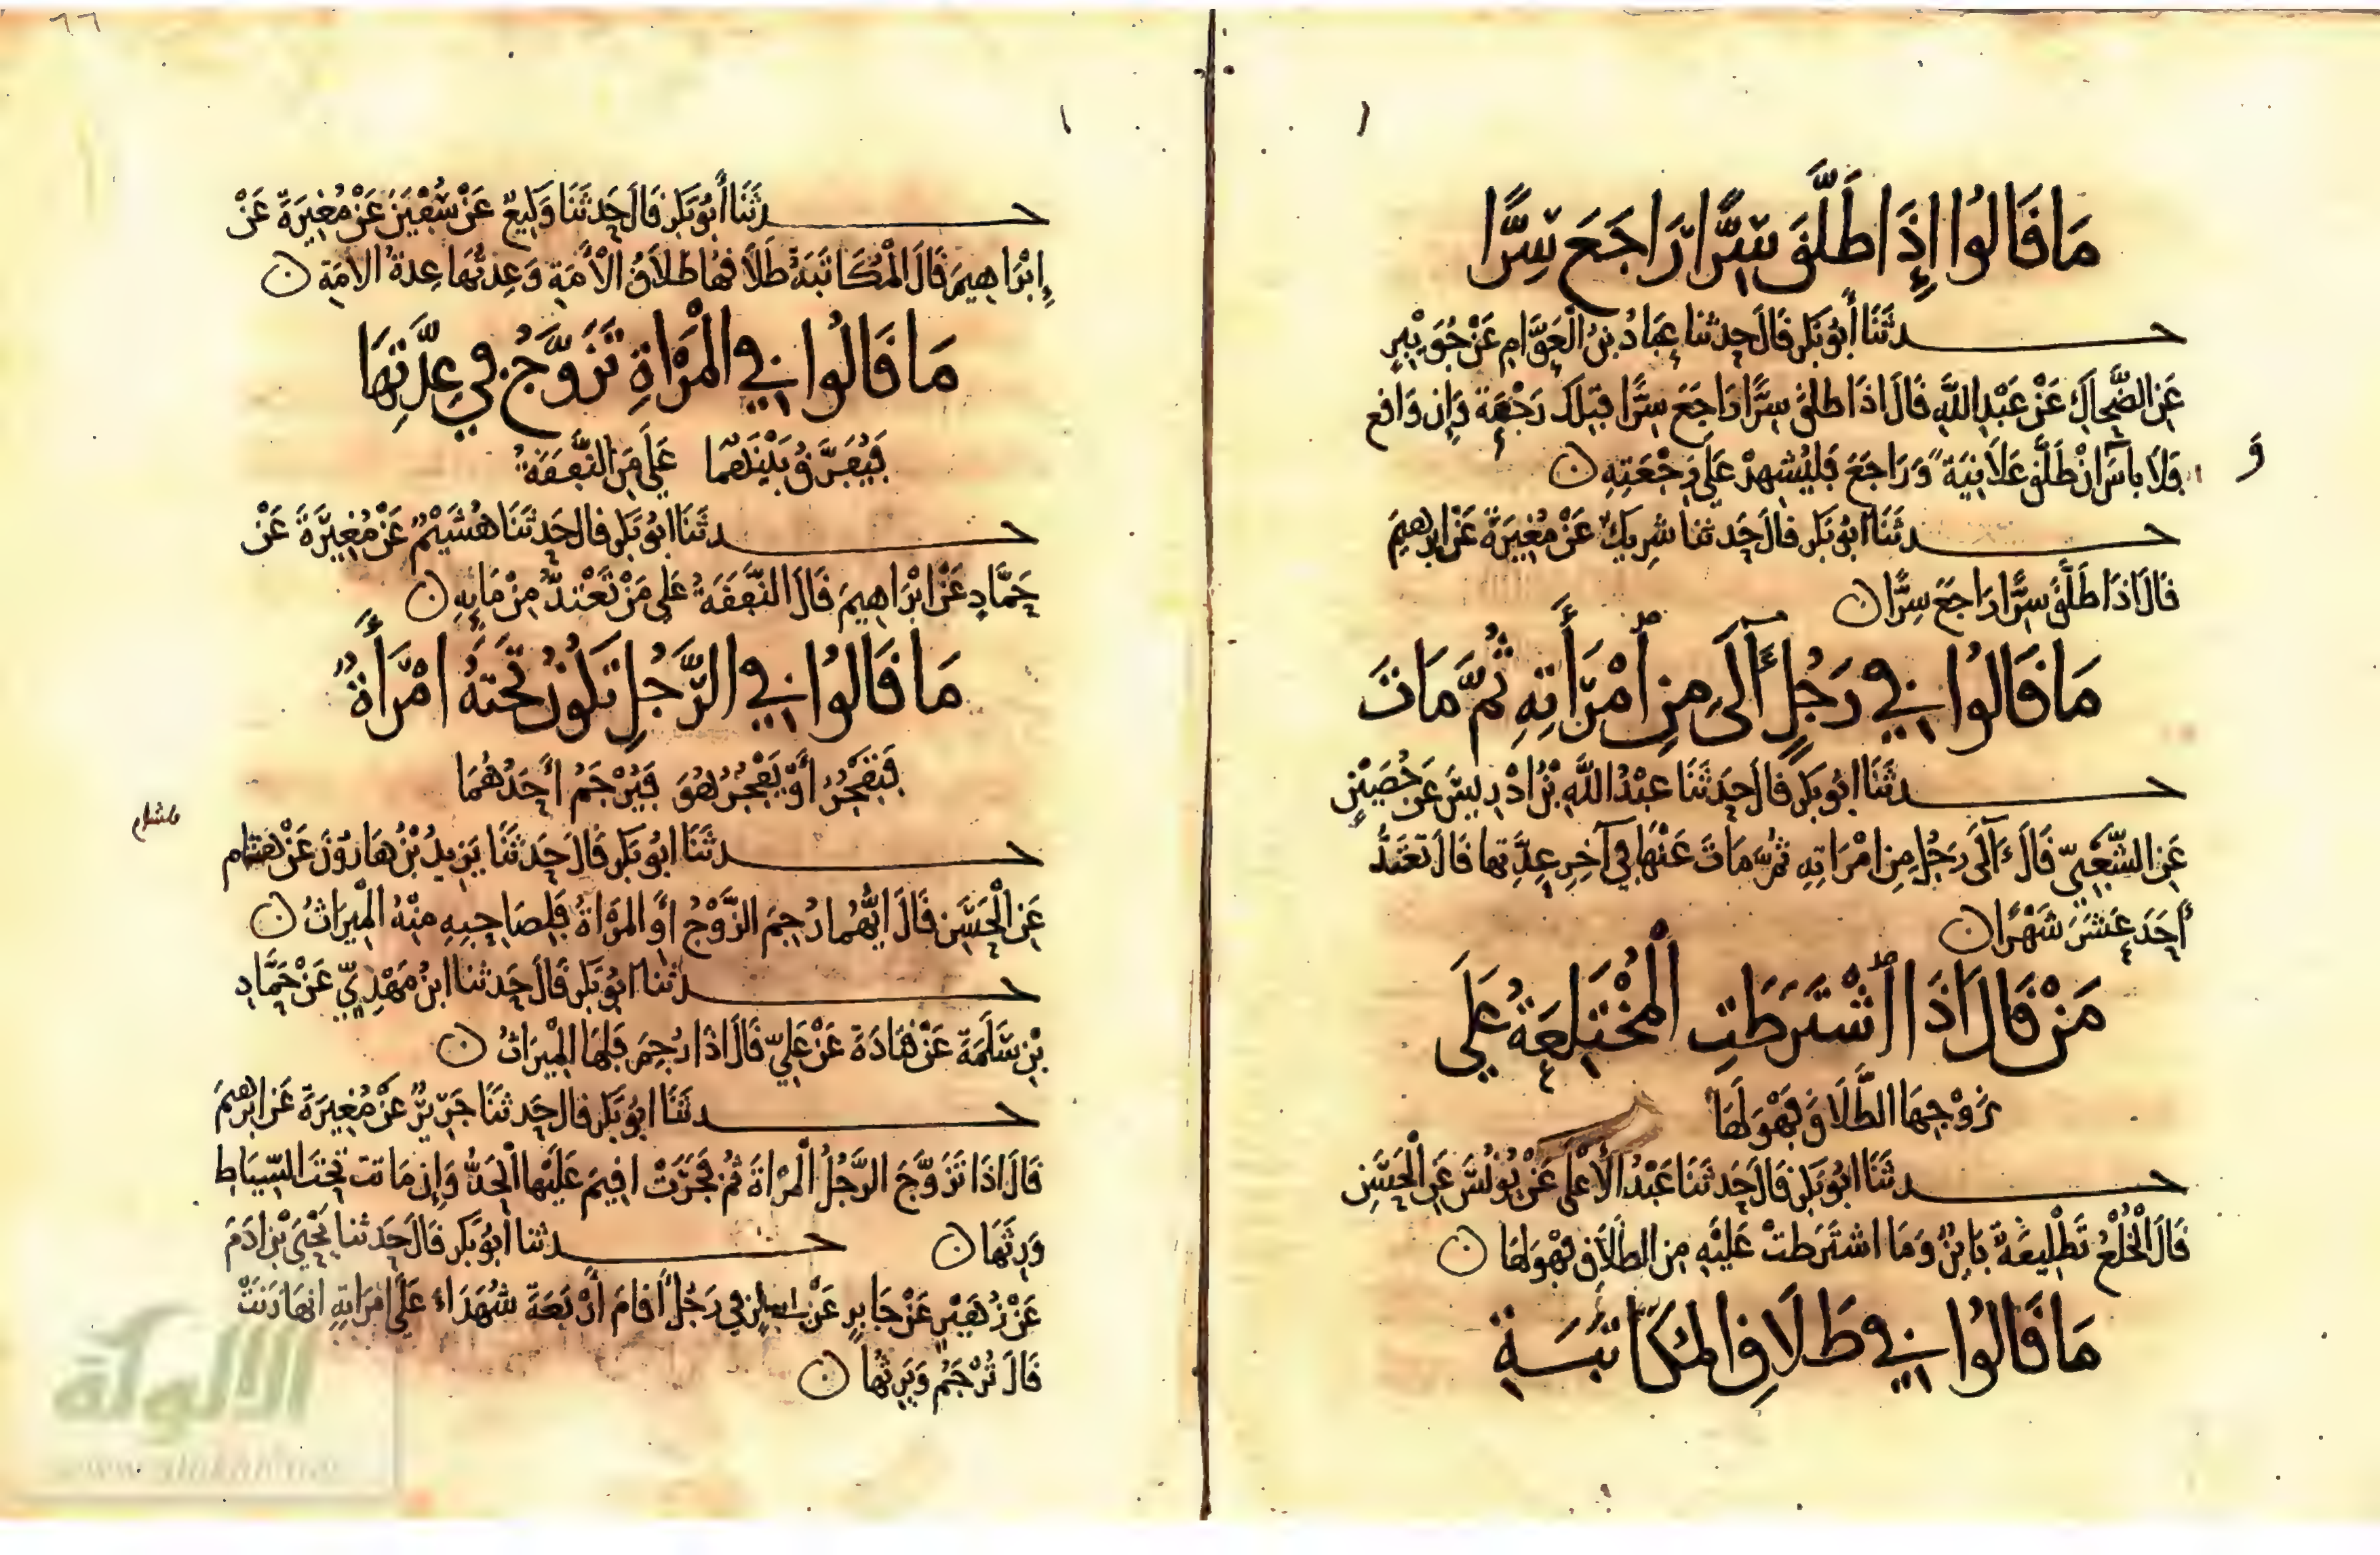 مَا قَالُوا إِذَا طَلَّقَ سِرًّا رَاجَعَ سِرًّا
حدثَنَا أَبُو بَكرٍ قَالَ حَدثنا عَبادُ بنُ الْعَوَّامِ عَنْ جُوَيْبِرٍ
عَنِ الضَّحاكِ عَنْ عَبْدِ اللَّهِ قَالَ اذَا طلقَ سِرًّا رَاجَعَ سِرًّا فتِلكَ رَجْعَة وَإِن وَاقع
و
فَلَا بأسَ انْ طَلَّقَ عَلَانِيَةً وَرَاجَعَ فَليُشهِدْ عَلَى رَجْعَتِهِ ن
حدثَنَا ابُو بَكرٍ قالَ حَدثنا شرِيكٌ عَنْ مُغِيرَةَ عَن ابرهِيمَ
قَالَ اذَا طَلَّقَ سِرًّا رَاجَعَ سِرًّا ن
مَا قَالُوا فِي رَجُلٍ آلَى مِنِ امْرَأَتِهِ ثُمَّ مَاتَ
حدثَنَا ابُو بَكرٍ قالَ حَدثَنَا عَبْدُ اللَّهِ بْنُ ادْرِيسَ عَن حُصَيْنٍ
عَنِ الشَّعْبِيِّ قَالَ آلَى رَجُل مِنِ امْرَاتِهِ ثمَّ مَاتَ عَنْهَا فِي آخِرِ عِدَّتِها قَالَ تَعْتَدُّ
أَحَدَ عَشَرَ شَهْرًا ن
مَنْ قَالَ اذَا اشْتَرَطَتِ الْمُخْتَلِعَةُ عَلَى
زَوْجِهَا الطَّلَاقَ فَهْوَ لَهَا
حدثَنَا ابُو بَكرٍ قَالَ حَدثَنَا عَبْدُ الأَعْلَى عَنْ يُونُسَ عَنِ الْحَسَنِ
قَالَ الْخُلْعُ تَطْلِيقَةٌ بَايِنٌ وَمَا اشتَرَطتْ عَلَيْهِ مِن الطَّلَاقِ فَهْوَ لهَا ن
مَا قَالُوا فِي طَلَاقِ المُكَاتَبَةِ
حدثَنَا أَبُو بَكرٍ قَالَ حَدثَنَا وَكِيعٌ عَنْ سُفْيَنَ عَنْ مُغِيرَةَ عَنْ
إِبْرَاهِيمَ قَالَ الْمُكَاتَبَةُ طَلَاقُهَا طَلَاقُ الْأَمَةِ وَعِدتُهَا عِدةُ الامَةِ ن
مَا قَالُوا فِي الْمَرْاةِ تَزَوَّجُ فِي عِدَّتِهَا
فَيُفَرَّقُ بَيْنَهُمَا عَلَى مَنِ النَّفَقَةُ
حدثَنَا ابُو بَكرٍ قال حَدثَنَا هُشَيْمٌ عَنْ مُغِيرَةَ عَنْ
حَمَّادٍ عَنْ ابْرَاهِيمَ قَالَ النَّفَقَةُ عَلَى مَنْ تَعْتَدُّ مِنْ مَايِهِ ن
مَا قَالُوا فِي الرَّجُلِ تَكُونُ تَحْتَهُ امْرَأَةٌ
فَتَفْجُرُ أَوْ يَفْجُرُ هُوَ فَيُرْجَمُ أَحَدُهُمَا
حدثَنَا ابُو بَكرٍ قَالَ حَدثَنَا يَزِيدُ بْنُ هَارُونَ عَنْ هشام
هشام
عَنِ الْحَسَنِ قَالَ ايُّهُمَا رُجِمَ الزَّوْجُ اوِ المَرْاةُ فَلِصَاحِبِهِ مِنْهُ الْمِيرَاثُ ن
حدثنا ابُو بَكرٍ قَالَ حَدثنا ابنُ مَهْدِيٍّ عَنْ حَمَّادِ
بْنِ سَلَمَةَ عَنْ قتَادَةَ عَنْ عَلِيٍّ قَالَ اذا رُجِمَ فَلَهَا الْمِيرَاثُ ن
حدثَنَا ابُو بَكرٍ قال حَدثَنَا جَرِيرٌ عَنْ مُغِيرَةَ عَن ابرهِيمَ
قَالَ اذَا تَزَوَّجَ الرَّجُلُ الْمَرْاةَ ثُمَّ فَجَرَتْ اقِيمَ عَلَيْهَا الْحَدُّ وَإِن مَاتت تَحْتَ السِّيَاطِ
وَرِثَهَا ن حدثنا أَبُو بَكرٍ قَالَ حَدثنا يَحْيَى بْن ادَمَ
عَنْ زُهَيْرٍ عَنْ جَابِرٍ عَنْ في رَجُل أَقَامَ أَرْبَعَةَ شُهَدَاءَ عَلَى امرَاتِهِ انهَا زَنَتْ
قَالَ تُرْجَمُ وَيَرِثُهَا ن
٦٦
الألوكة